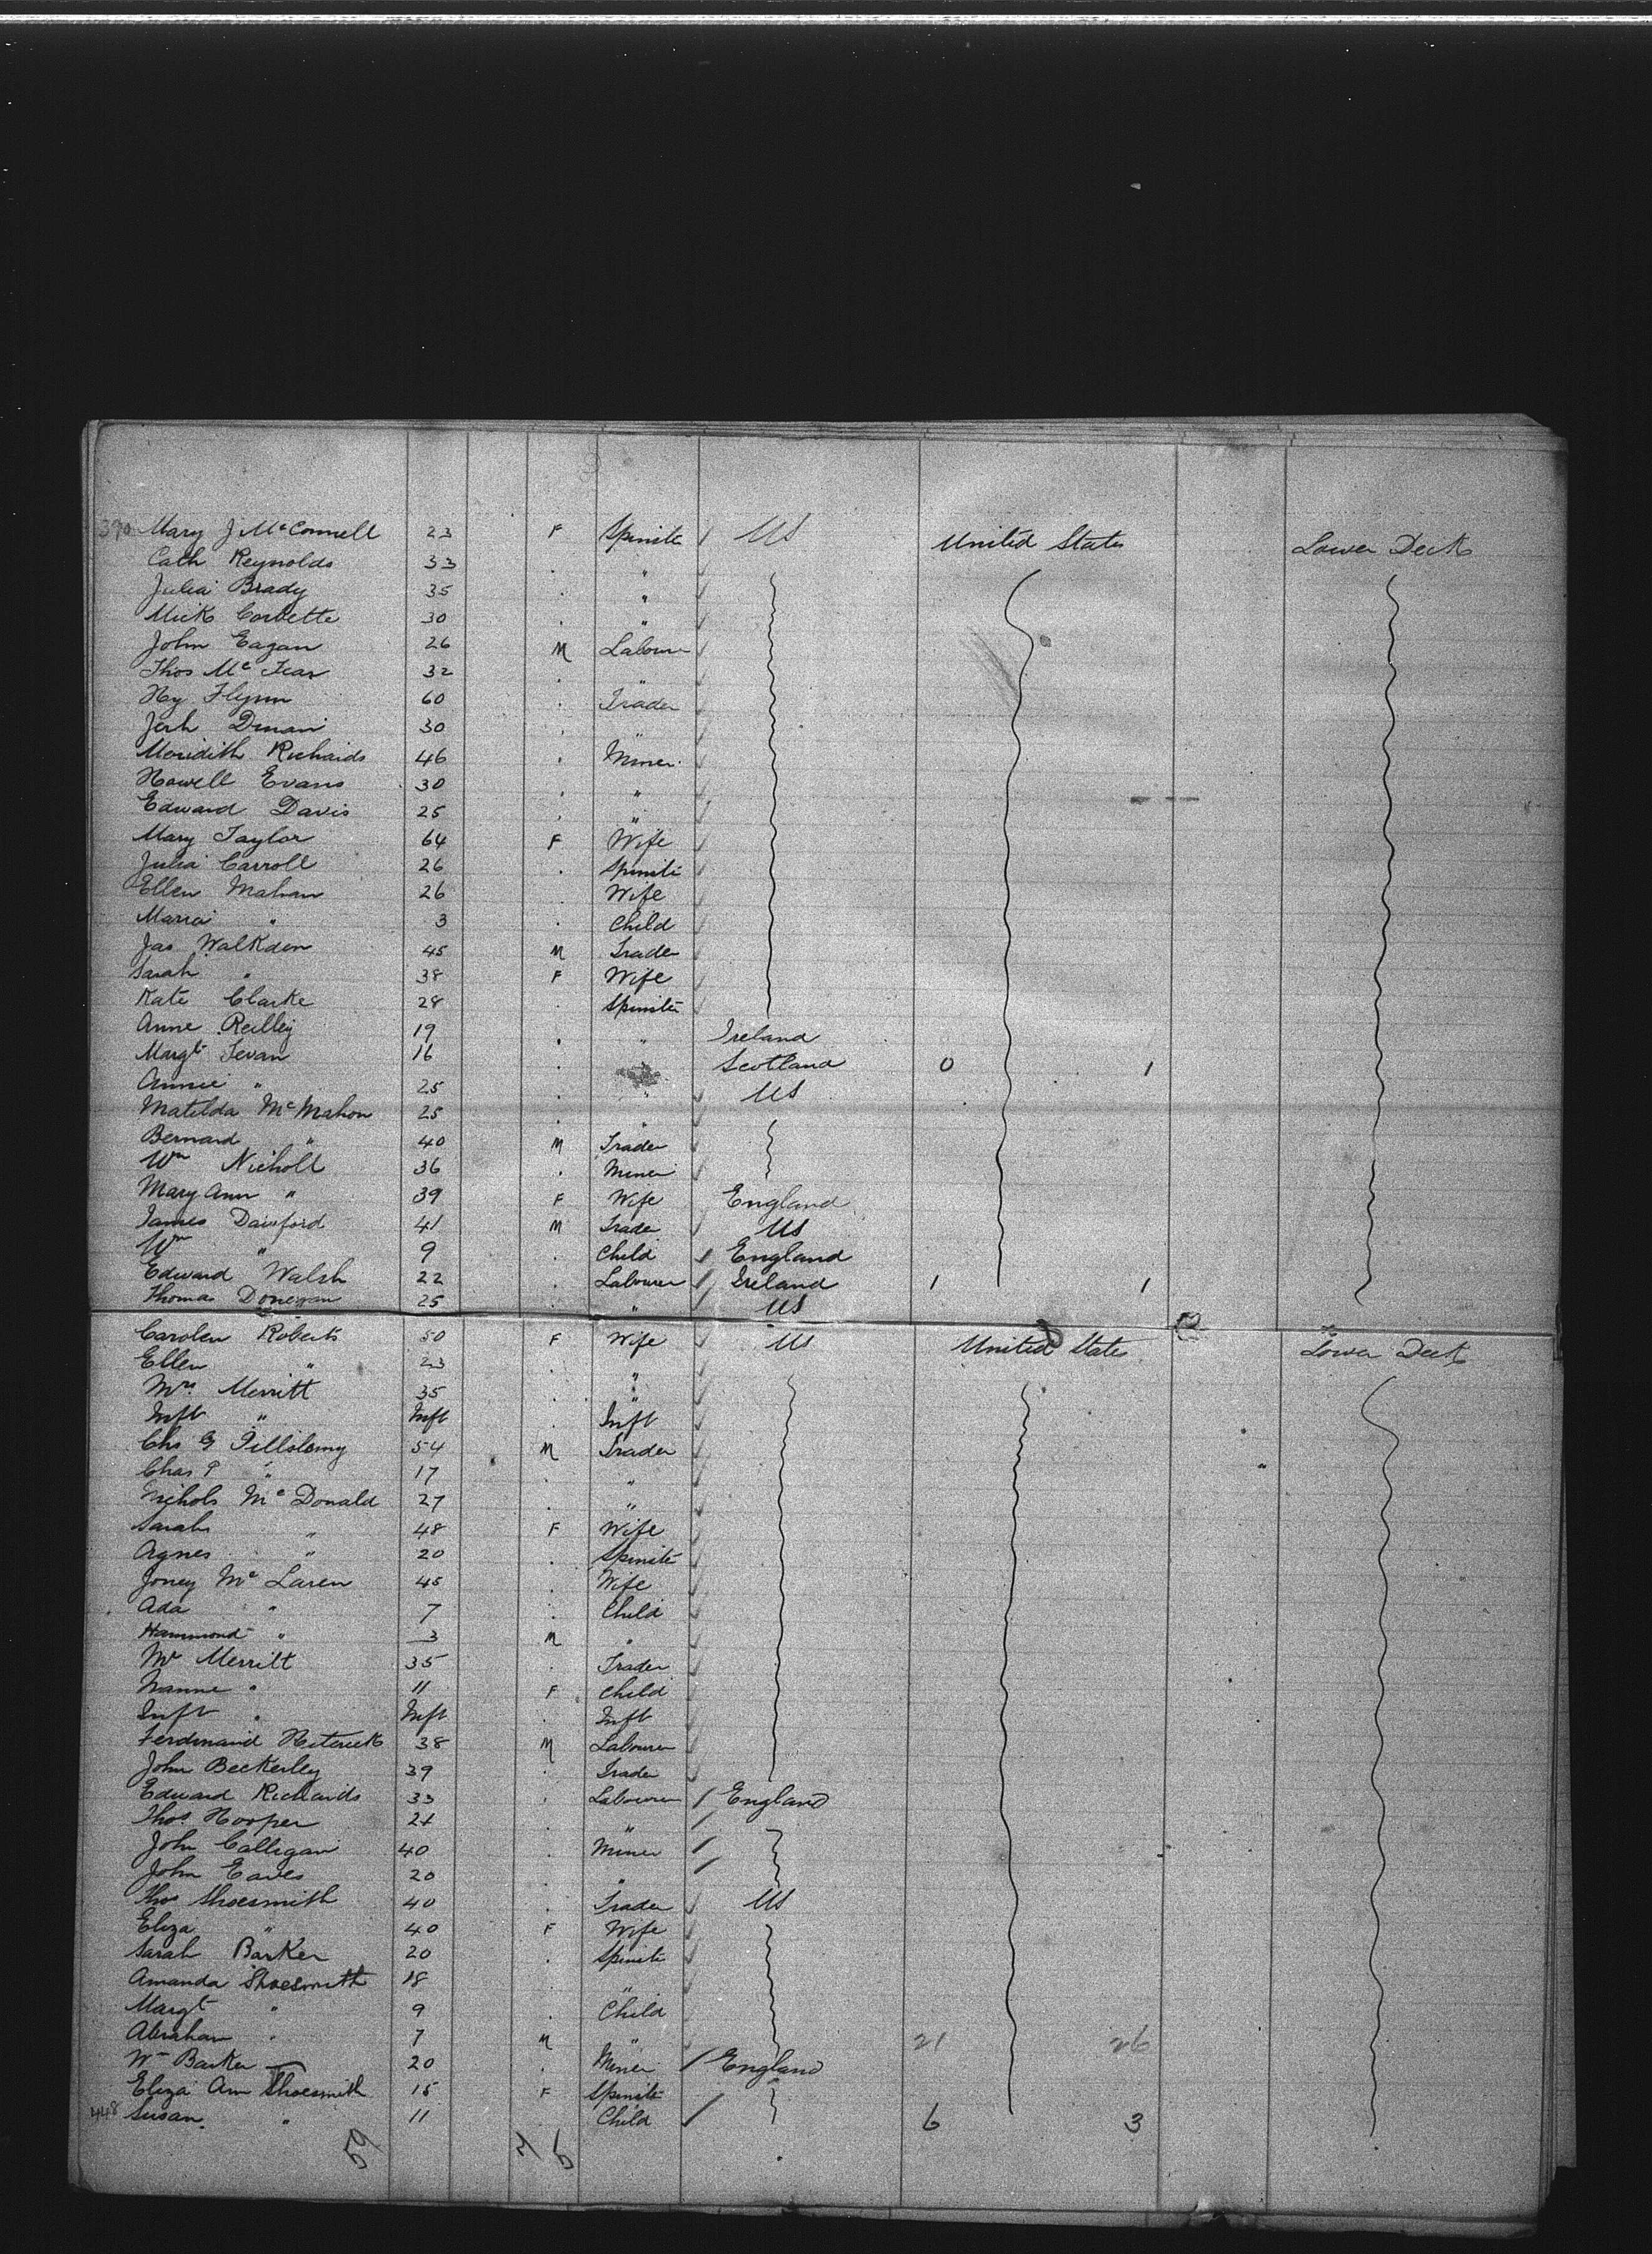 390 Mary J McConnell 23 F Spinster US United States Lower Deck
Cath Reynolds 33 . "
Julia Brady 35 . "
Mick Corbette 30 . "
John Eagan 26 M Labourer
Thos Mc 32 . "
Hy Flynn 60 . Trader
Jerh 30 . "
Meridith Richards 46 . Miner
Howell Evans 30 . "
Edward Davis 25 . "
Mary Taylor 64 F Wife
Julia Carroll 26 . Spinster
Ellen Mahan 26 . Wife
Maria " 3 . Child
Jas Walkden 45 M Trader
Sarah " 38 F Wife
Kate Clarke 28 . Spinster
Anne Reilley 19 . " Ireland
Margt 16 . " Scotland 0 1
Annie " 25 . " US
Matilda McMahon 25 . "
Bernard " 40 M Trader
Wm Nicholl 36 . Miner
Mary Ann " 39 F Wife England
James 41 M Trader US
Wm " 9 . Child England
Edward Walsh 22 . Labourer Ireland 1 1
Thomas Donegan 25 . " US
Carolen Roberts 50 F Wife US United States Lower Deck
Ellen " 23 . "
Mrs Merritt 35 . "
Inft " Inft . Inft
Chs G 54 M Trader
Chas P " 17 . "
Nichols Mc Donald 27 . "
Sarah " 48 F Wife
Agnes " 20 . Spinster
Joney Mc Laren 45 . Wife
Ada " 7 . Child
Hammond " 3 M "
Mr Merritt 35 . Trader
Nanne " 11 F Child
Inft " Inft . Inft
Ferdinand 38 M Labourer
John Beckerley 39 . Trader
Edward Richards 33 . Labourer England
Thos Hooper 21 . "
John Calligan 40 . Miner
John Eaves 20 . "
Thos Shoesmith 40 . Trader US
Eliza " 40 F Wife
Sarah Barker 20 . Spinster
Amanda Shoesmith 18 . "
Margt " 9 . Child
Abraham " 7 M " 21 26
Wm Barker 20 . Miner England
Eliza Ann Shoesmith 15 F Spinster
448 Susan " 11 . Child 6 3
59